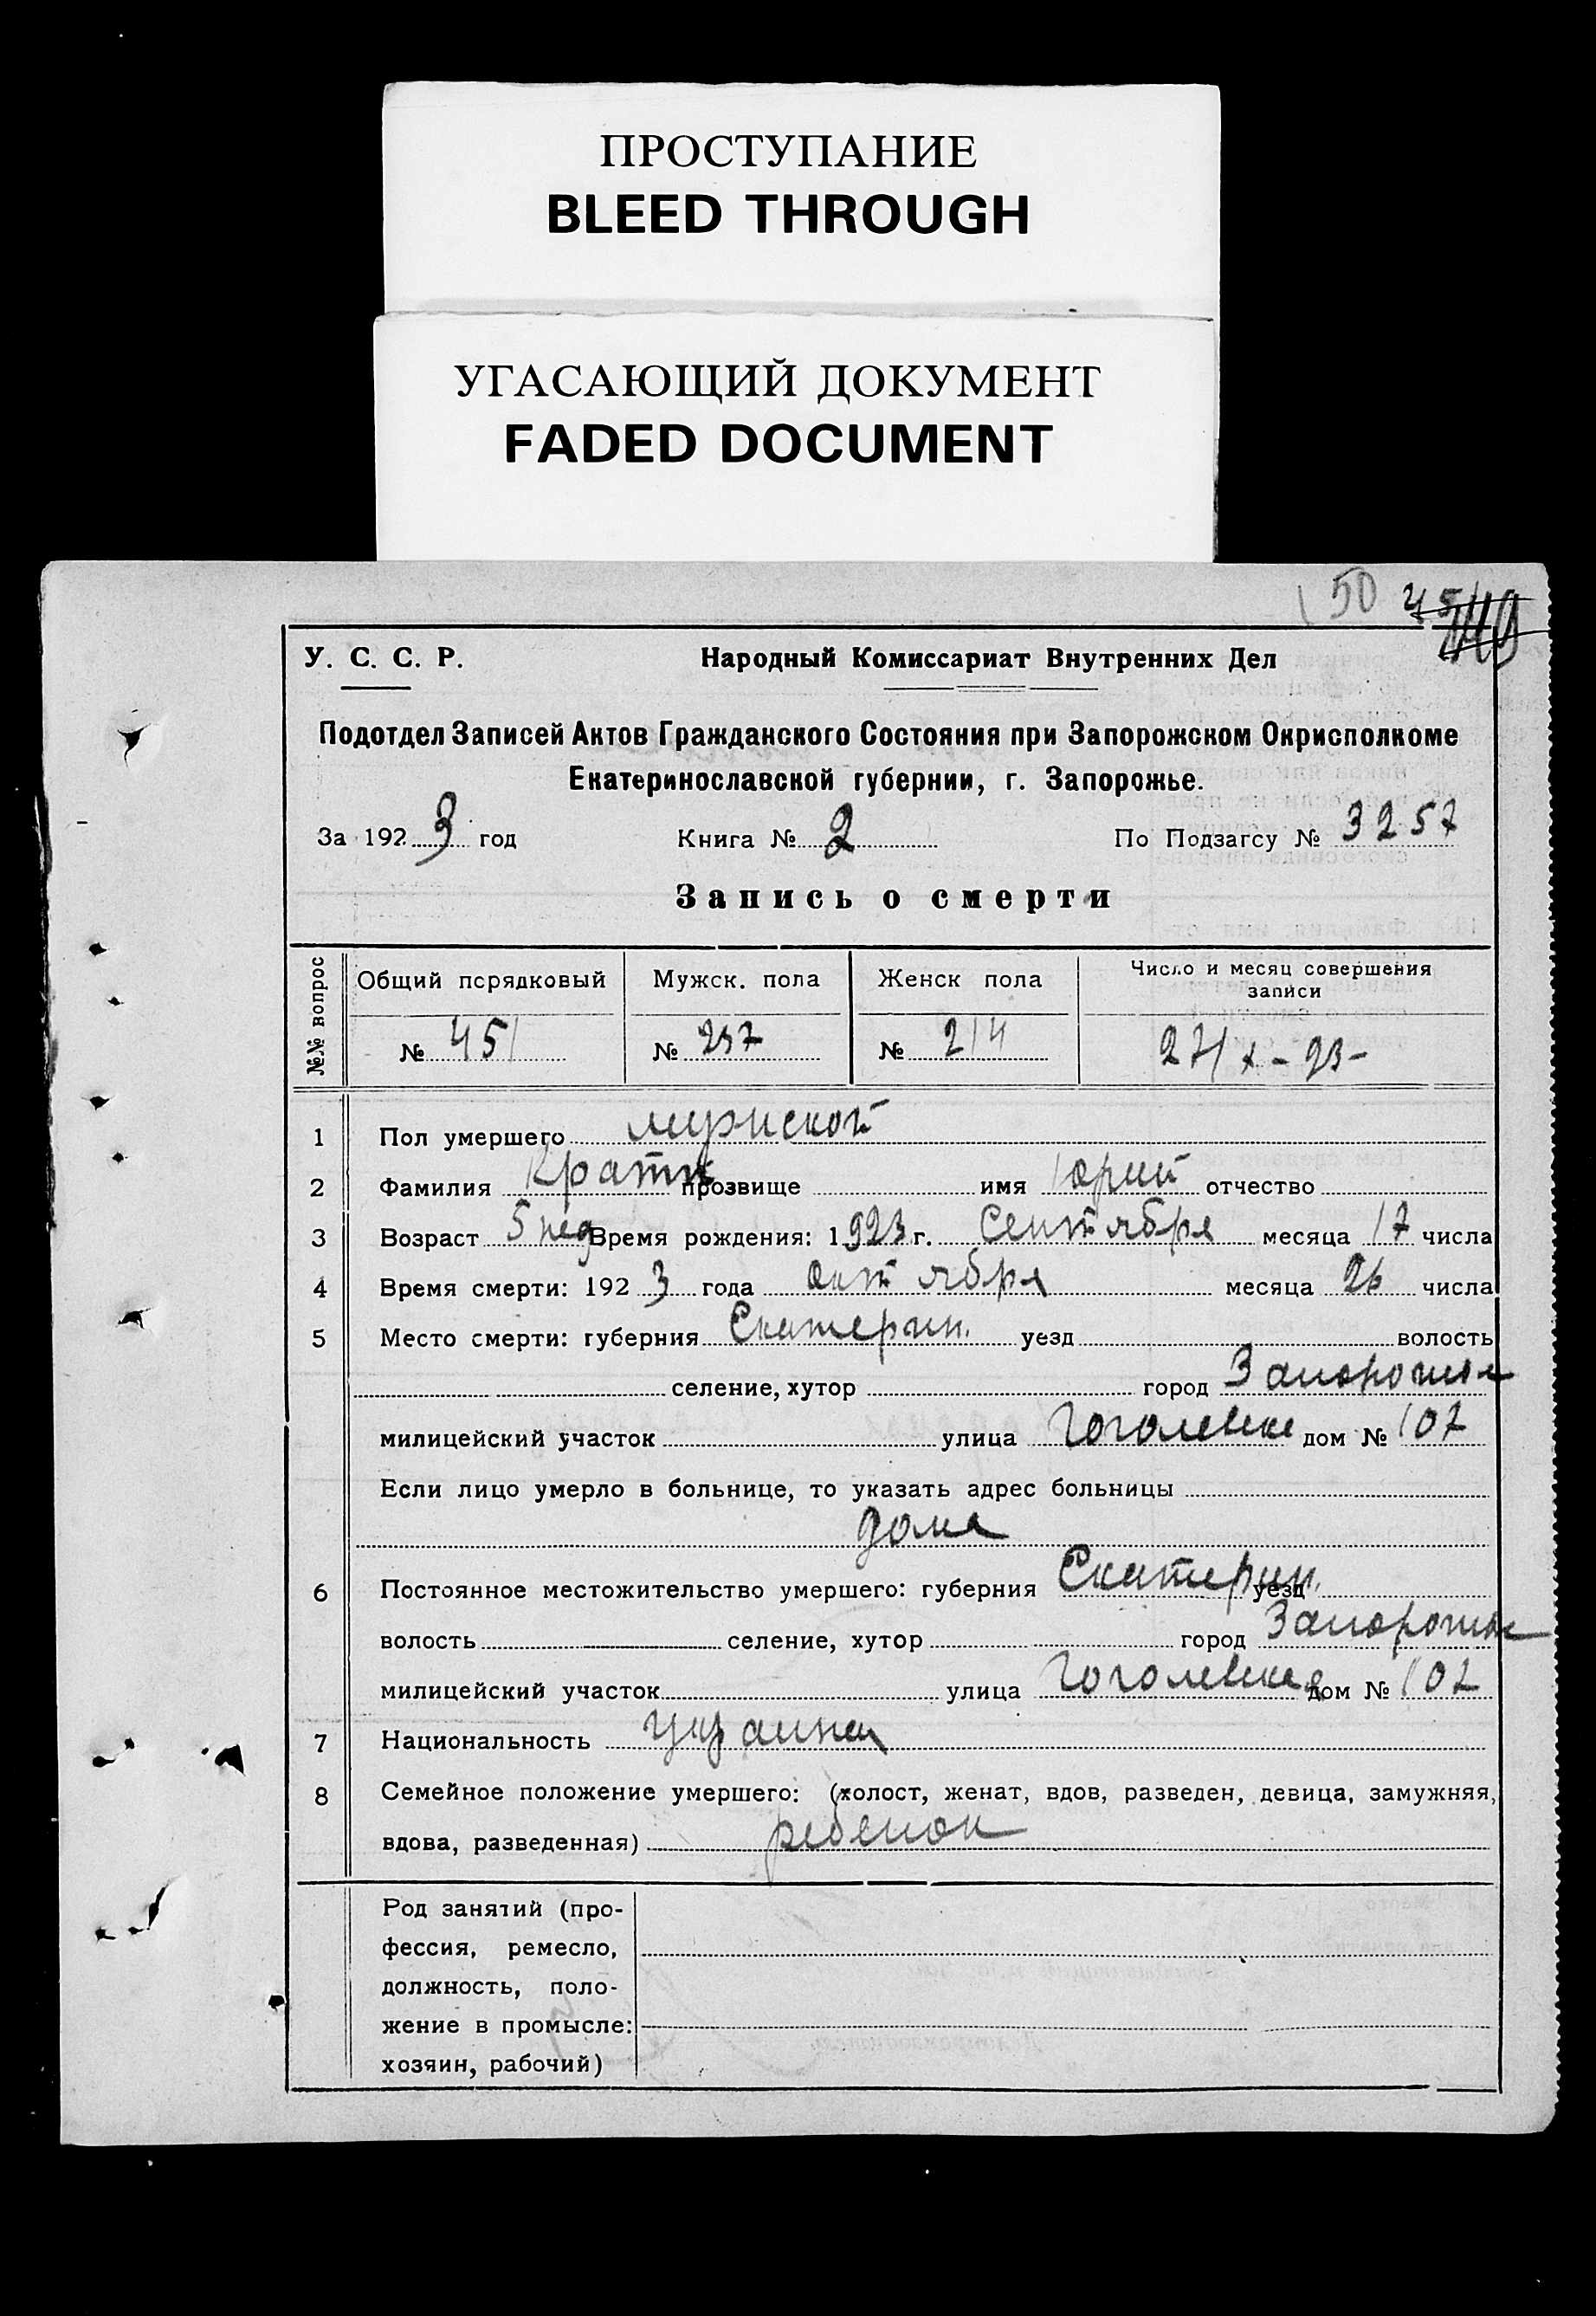 ПРОСТУПАНИЕ
BLEED THROUGH
УГАСАЮЩИЙ ДОКУМЕНТ
FADED DOCUMENT
150 451
У. С. С. Р. Народный Комиссариат Внутренних Дел
Подотдел Записей Актов Гражданского Состояния при Запорожском Окрисполкоме
Екатеринославской губернии, г. Запорожье.
За 1923 год Книга № 2 По Подзагсу № 3257
Запись о смерти
№№ вопрос Общий порядковый Мужск. пола Женск пола Число и месяц совершения
записи
№ 451 № 237 № 214 27/X-23-
1 Пол умершего мужской
2 Фамилия Кратк прозвище имя Юрий отчество
3 Возраст 5 нед Время рождения: 1923 г. Сентября месяца 17 числа
4 Время смерти: 1923 года октября месяца 26 числа
5 Место смерти: губерния Екатерин. уезд волость
селение, хутор город Запорожье
милицейский участок улица Гоголевск дом № 107
Если лицо умерло в больнице, то указать адрес больницы
дома
6 Постоянное местожительство умершего: губерния Екатерин. уезд
волость селение, хутор город Запорожье
милицейский участок улица Гоголевская дом № 107
7 Национальность украинец
8 Семейное положение умершего: (холост, женат, вдов, разведен, девица, замужняя,
вдова, разведенная) ребенок
Род занятий (про-
фессия, ремесло,
должность, поло-
жение в промысле:
хозяин, рабочий)